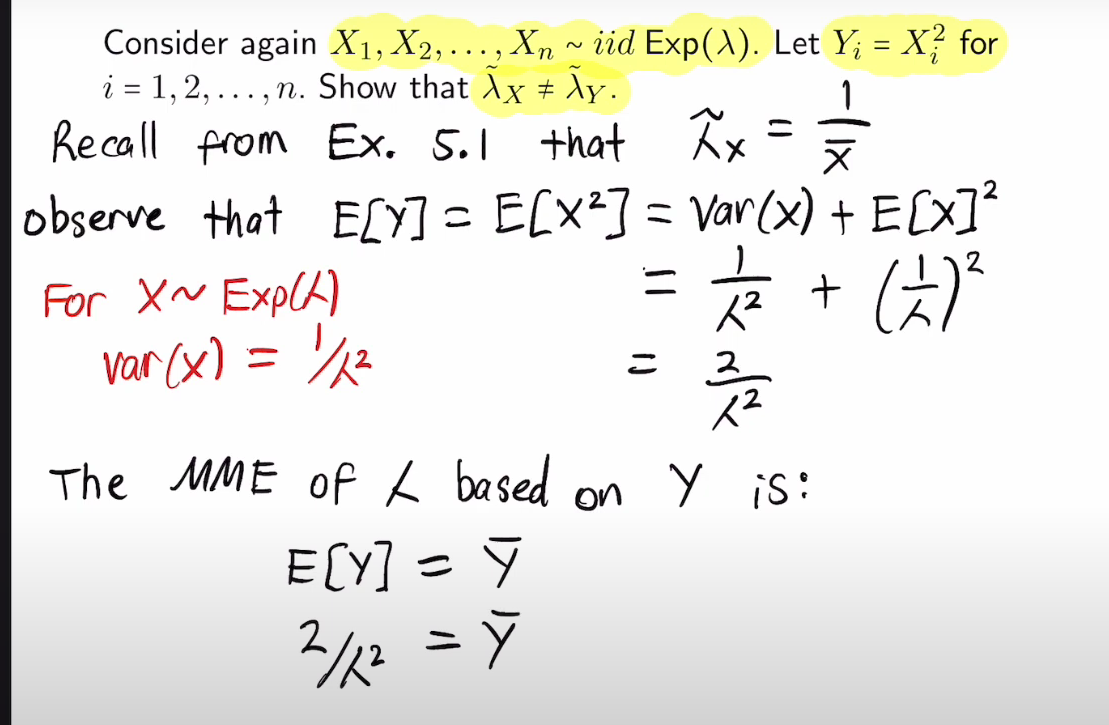 Consider again X₁, X₂, . . . , Xₙ ~ iid Exp(λ). Let Yᵢ = Xᵢ² for
i = 1, 2, . . . , n. Show that λ̃_X ≠ λ̃_Y.
Recall from Ex. 5.1 that λ̃x = 1/X̄
observe that E[Y] = E[X²] = Var(x) + E[X]²
For X~ Exp(λ)
= 1/λ² + (1/λ)²
var(x) = 1/λ²
= 2/λ²
The MME of λ based on Y is:
E[Y] = Ȳ
2/λ² = Ȳ